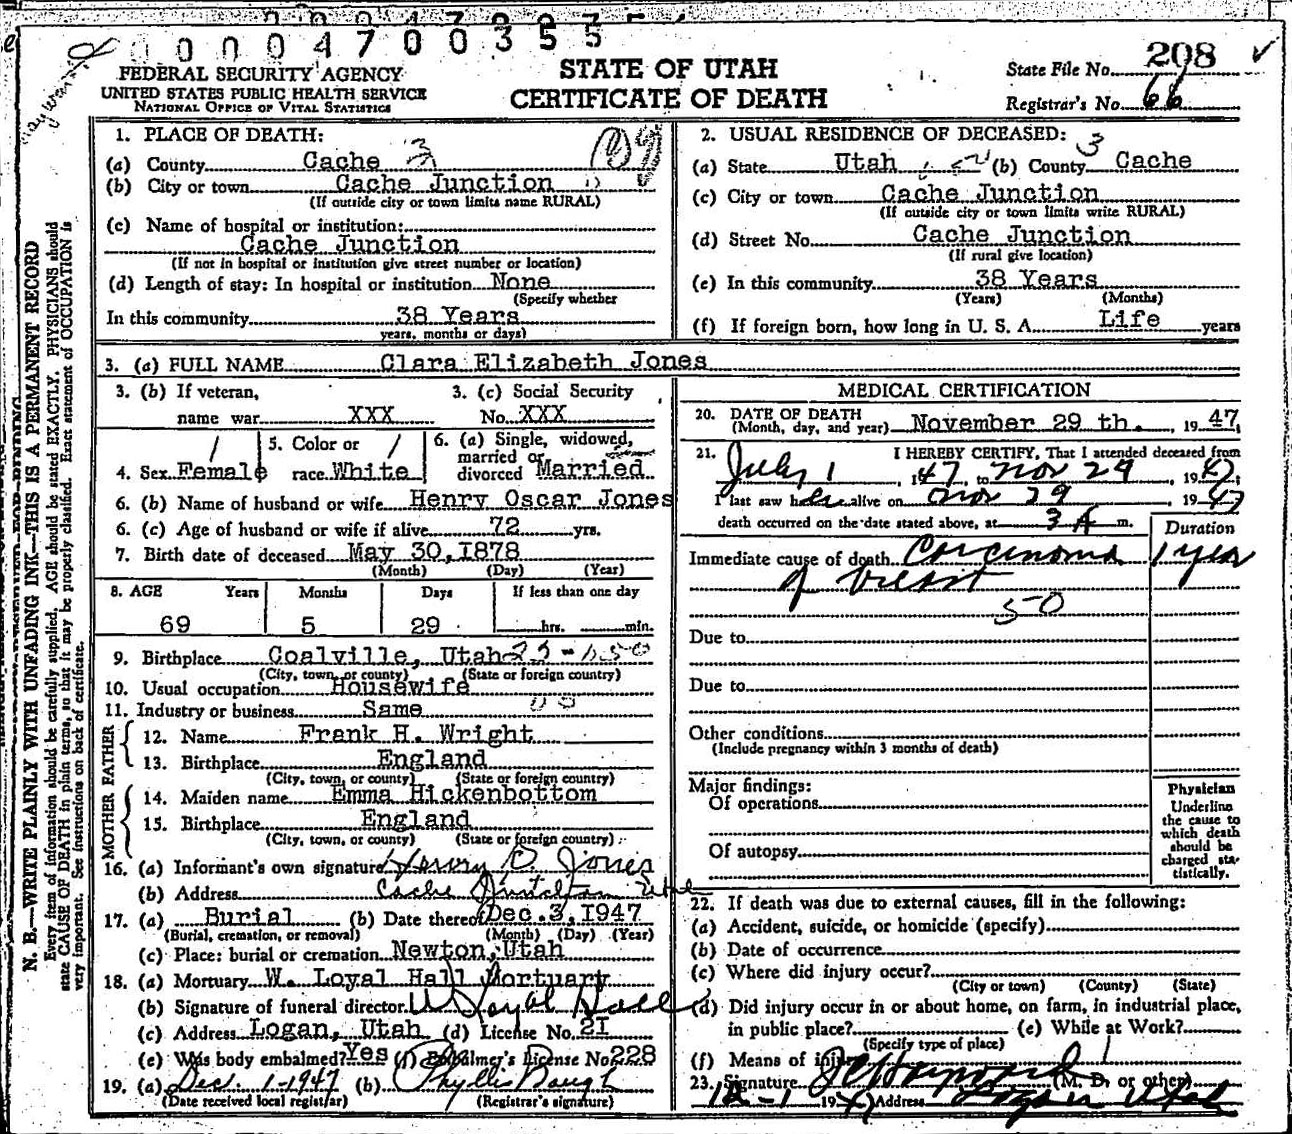 0000470035 5
FEDERAL SECURITY AGENCY
UNITED STATES PUBLIC HEALTH SERVICE
NATIONAL OFFICE OF VITAL STATISTICS
STATE OF UTAH
CERTIFICATE OF DEATH
State File No. 208
Registrar's No. 66
N. B.—WRITE PLAINLY WITH UNFADING INK—THIS IS A PERMANENT RECORD
Every item of information should be carefully supplied. AGE should be stated EXACTLY. PHYSICIANS should
state CAUSE OF DEATH in plain terms, so that it may be properly classified. Exact statement of OCCUPATION is
very important. See instructions on back of certificate.
1. PLACE OF DEATH:
(a) County Cache 3
(b) City or town Cache Junction
(If outside city or town limits name RURAL)
(c) Name of hospital or institution:
Cache Junction
(If not in hospital or institution give street number or location)
(d) Length of stay: In hospital or institution None
(Specify whether
In this community 38 Years
years, months or days)
2. USUAL RESIDENCE OF DECEASED:
(a) State Utah (b) County 3 Cache
(c) City or town Cache Junction
(If outside city or town limits write RURAL)
(d) Street No. Cache Junction
(If rural give location)
(e) In this community 38 Years
(Years) (Months)
(f) If foreign born, how long in U. S. A. Life years
3. (a) FULL NAME Clara Elizabeth Jones
3. (b) If veteran,
name war XXX
3. (c) Social Security
No. XXX
4. Sex Female
5. Color or
race White
6. (a) Single, widowed,
married or
divorced Married
6. (b) Name of husband or wife Henry Oscar Jones
6. (c) Age of husband or wife if alive 72 yrs.
7. Birth date of deceased May 30, 1878
(Month) (Day) (Year)
8. AGE Years Months Days If less than one day
69 5 29 hrs. min.
9. Birthplace Coalville, Utah
(City, town, or county) (State or foreign country)
10. Usual occupation Housewife
11. Industry or business Same
FATHER
12. Name Frank H. Wright
13. Birthplace England
(City, town, or county) (State or foreign country)
MOTHER
14. Maiden name Emma Hickenbottom
15. Birthplace England
(City, town, or county) (State or foreign country)
16. (a) Informant's own signature Henry O Jones
(b) Address Cache Junction Utah
17. (a) Burial (b) Date thereof Dec. 3, 1947
(Burial, cremation, or removal) (Month) (Day) (Year)
(c) Place: burial or cremation Newton, Utah
18. (a) Mortuary W. Loyal Hall Mortuary
(b) Signature of funeral director W Loyal Hall
(c) Address Logan, Utah (d) License No. 21
(e) Was body embalmed? Yes (f) Embalmer's License No. 228
19. (a) Dec. 1-1947 (b) Phyllis
(Date received local registrar) (Registrar's signature)
MEDICAL CERTIFICATION
20. DATE OF DEATH
(Month, day, and year) November 29 th. , 19 47,
21. I HEREBY CERTIFY, That I attended deceased from
July 1, 1947, to Nov 29, 1947;
I last saw her alive on Nov 29 1947
death occurred on the date stated above, at 3 A m.
Duration
Immediate cause of death Carcinoma 1 year
of breast
50
Due to
Due to
Other conditions
(Include pregnancy within 3 months of death)
Major findings:
Of operations
Of autopsy
Physician
Underline
the cause to
which death
should be
charged sta-
tistically.
22. If death was due to external causes, fill in the following:
(a) Accident, suicide, or homicide (specify)
(b) Date of occurrence
(c) Where did injury occur?
(City or town) (County) (State)
(d) Did injury occur in or about home, on farm, in industrial place,
in public place? (e) While at Work?
(Specify type of place)
(f) Means of injury
23. Signature (M. D. or other)
12-1 1947 Address Logan Utah